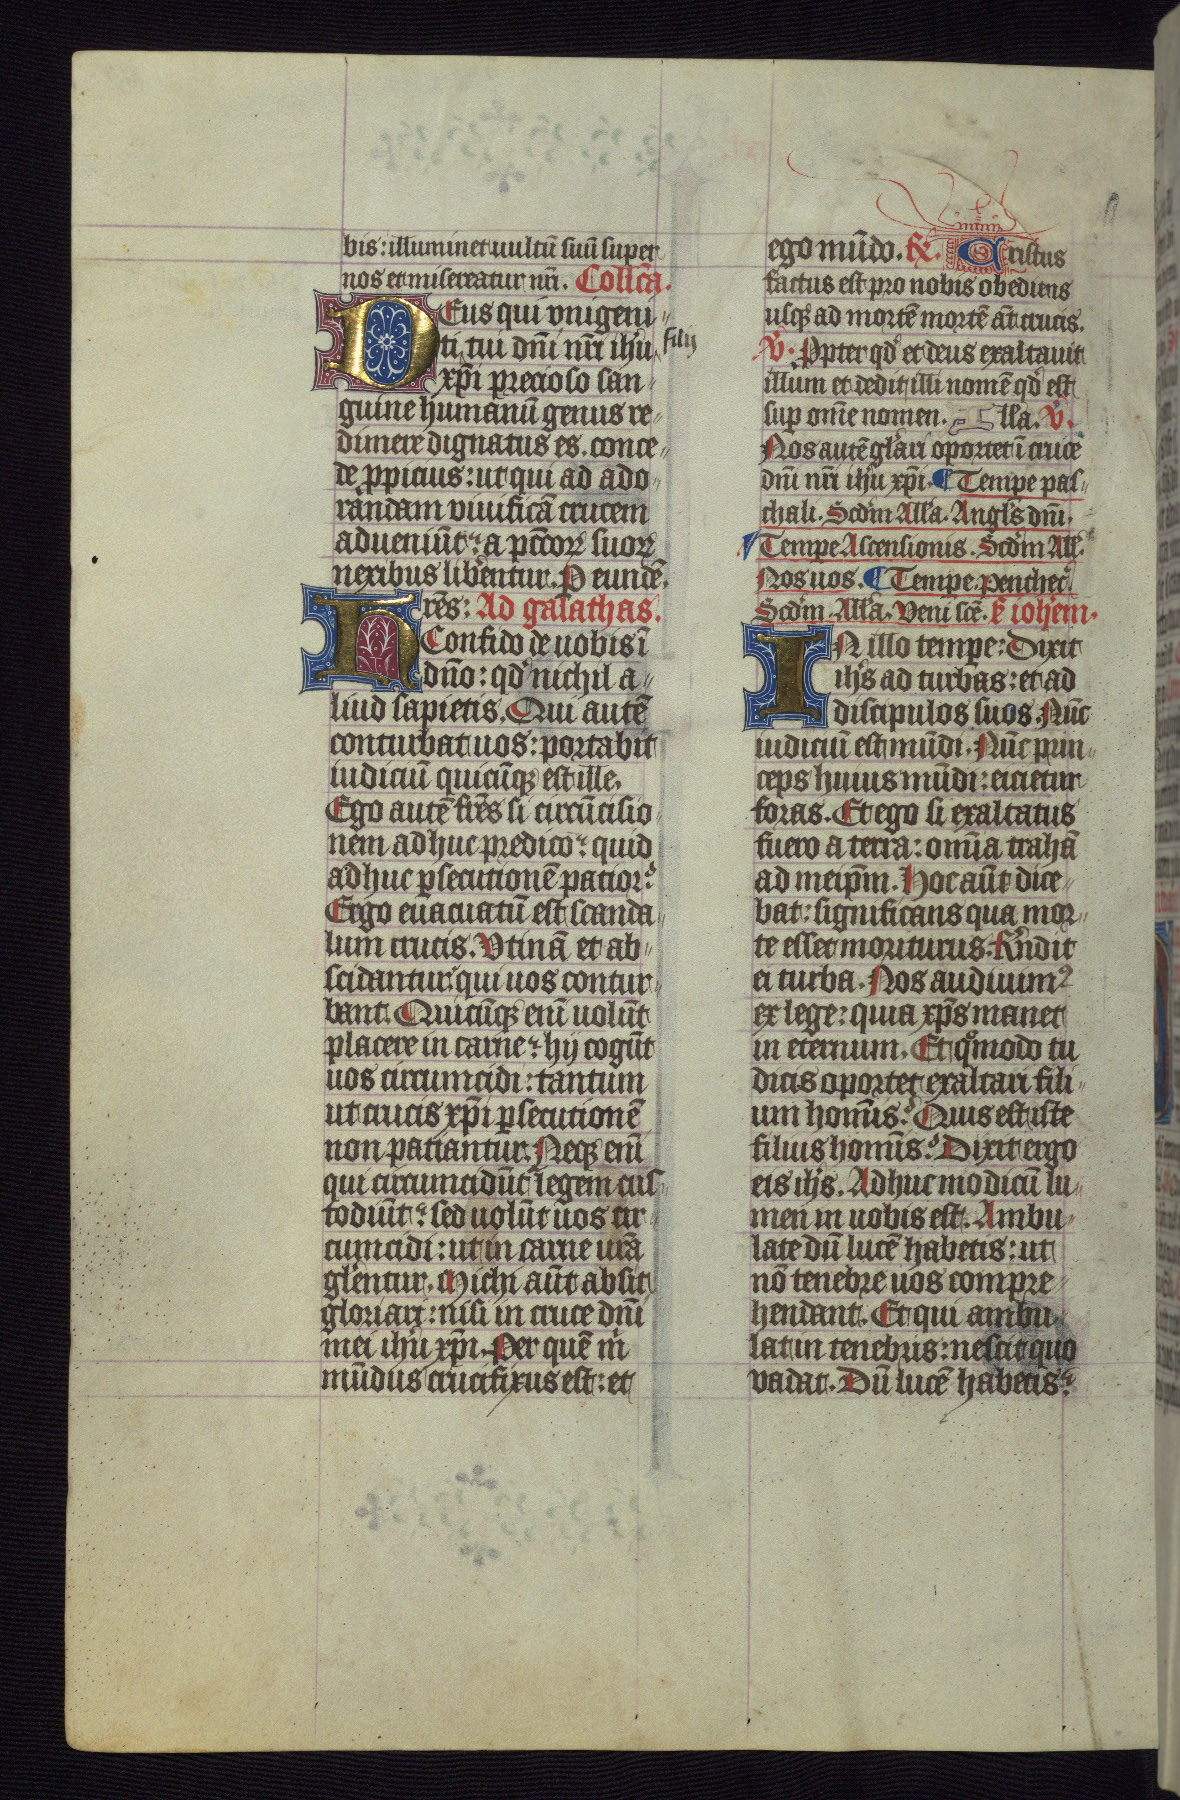 bis: illuminet uultū suū super
nos et misereatur nr̄i. Collc̄a.
Deus qui vnigeni-
ti tui dn̄i nr̄i ih̄u filij
xp̄i precioso san-
guine humanū genus re-
dimere dignatus es. conce-
de ꝓpicius: ut qui ad ado-
randam viuificā crucem
adueniūt: a pcc̄oꝝ suoꝝ
nexibus liberentur. P eundē.
Fres: Ad galathas.
Confido de uobis ī
dn̄o: qd̓ nichil a-
liud sapietis. Qui autē
conturbat uos: portabit
iudiciū quicūqꝫ est ille.
Ego autē frēs si circūcisio-
nem adhuc predico: quid
adhuc ꝑsecutionē patior?
Ergo euacuatū est scanda-
lum crucis. Vtinā et ab-
scidantur qui uos contur-
bant. Quicūqꝫ enī uolūt
placere in carne: hij cogūt
uos circumcidi: tantum
ut crucis xp̄i ꝑsecutionē
non patiantur. Neqꝫ enī
qui circumcidūt legem cus-
todiūt: sed uolūt uos cir-
cumcidi: ut in carne ur̄a
gl̄entur. Michi aūt absit
gloriari: nisi in cruce dn̄i
mei ih̄u xp̄i. Per quē m̄
mūdus crucifixus est: et
ego mūdo. R̄. Cristus
factus est pro nobis obediens
usqꝫ ad mortē mortē āt crucis.
V̄. Ꝓpter qd̓ et deus exaltauit
illum et dedit illi nomē qd̓ est
suꝑ omē nomen. lla. V̄.
Nos autē gl̄ari oportet ī cruce
dn̄i nr̄i ih̄u xp̄i. ¶ Tempe pas-
chali. Scd̄m All̄a. Angl̄s dn̄i.
Tempe Ascensionis. Scd̄m All̄.
Nos uos. ¶ Tempe. penthec̄.
Scd̄m. All̄a. Veni sc̄e. ẜ ioh̄em.
IN illo tempe: Dixit
ih̄s ad turbas: et ad
discipulos suos. Nūc
iudiciū est mūdi. Nūc prin-
ceps huius mūdi: eicietur
foras. Et ego si exaltatus
fuero a terra: omīa trahā
ad meip̄m. Hoc aūt dice-
bat: significans qua mor-
te esset moriturus. Rn̄dit
ei turba. Nos audiuimꝰ
ex lege: quia xp̄s manet
in eternum. Et qͦmodo tu
dicis oportet exaltari fili-
um homīs? Quis est iste
filius homīs? Dixit ergo
eis ih̄s. Adhuc modicū lu-
men in uobis est. Ambu-
late dū lucē habetis: ut
nō tenebre uos compre-
hendant. Et qui ambu-
lat in tenebris: nescit quo
vadat. Dū lucē habetis: